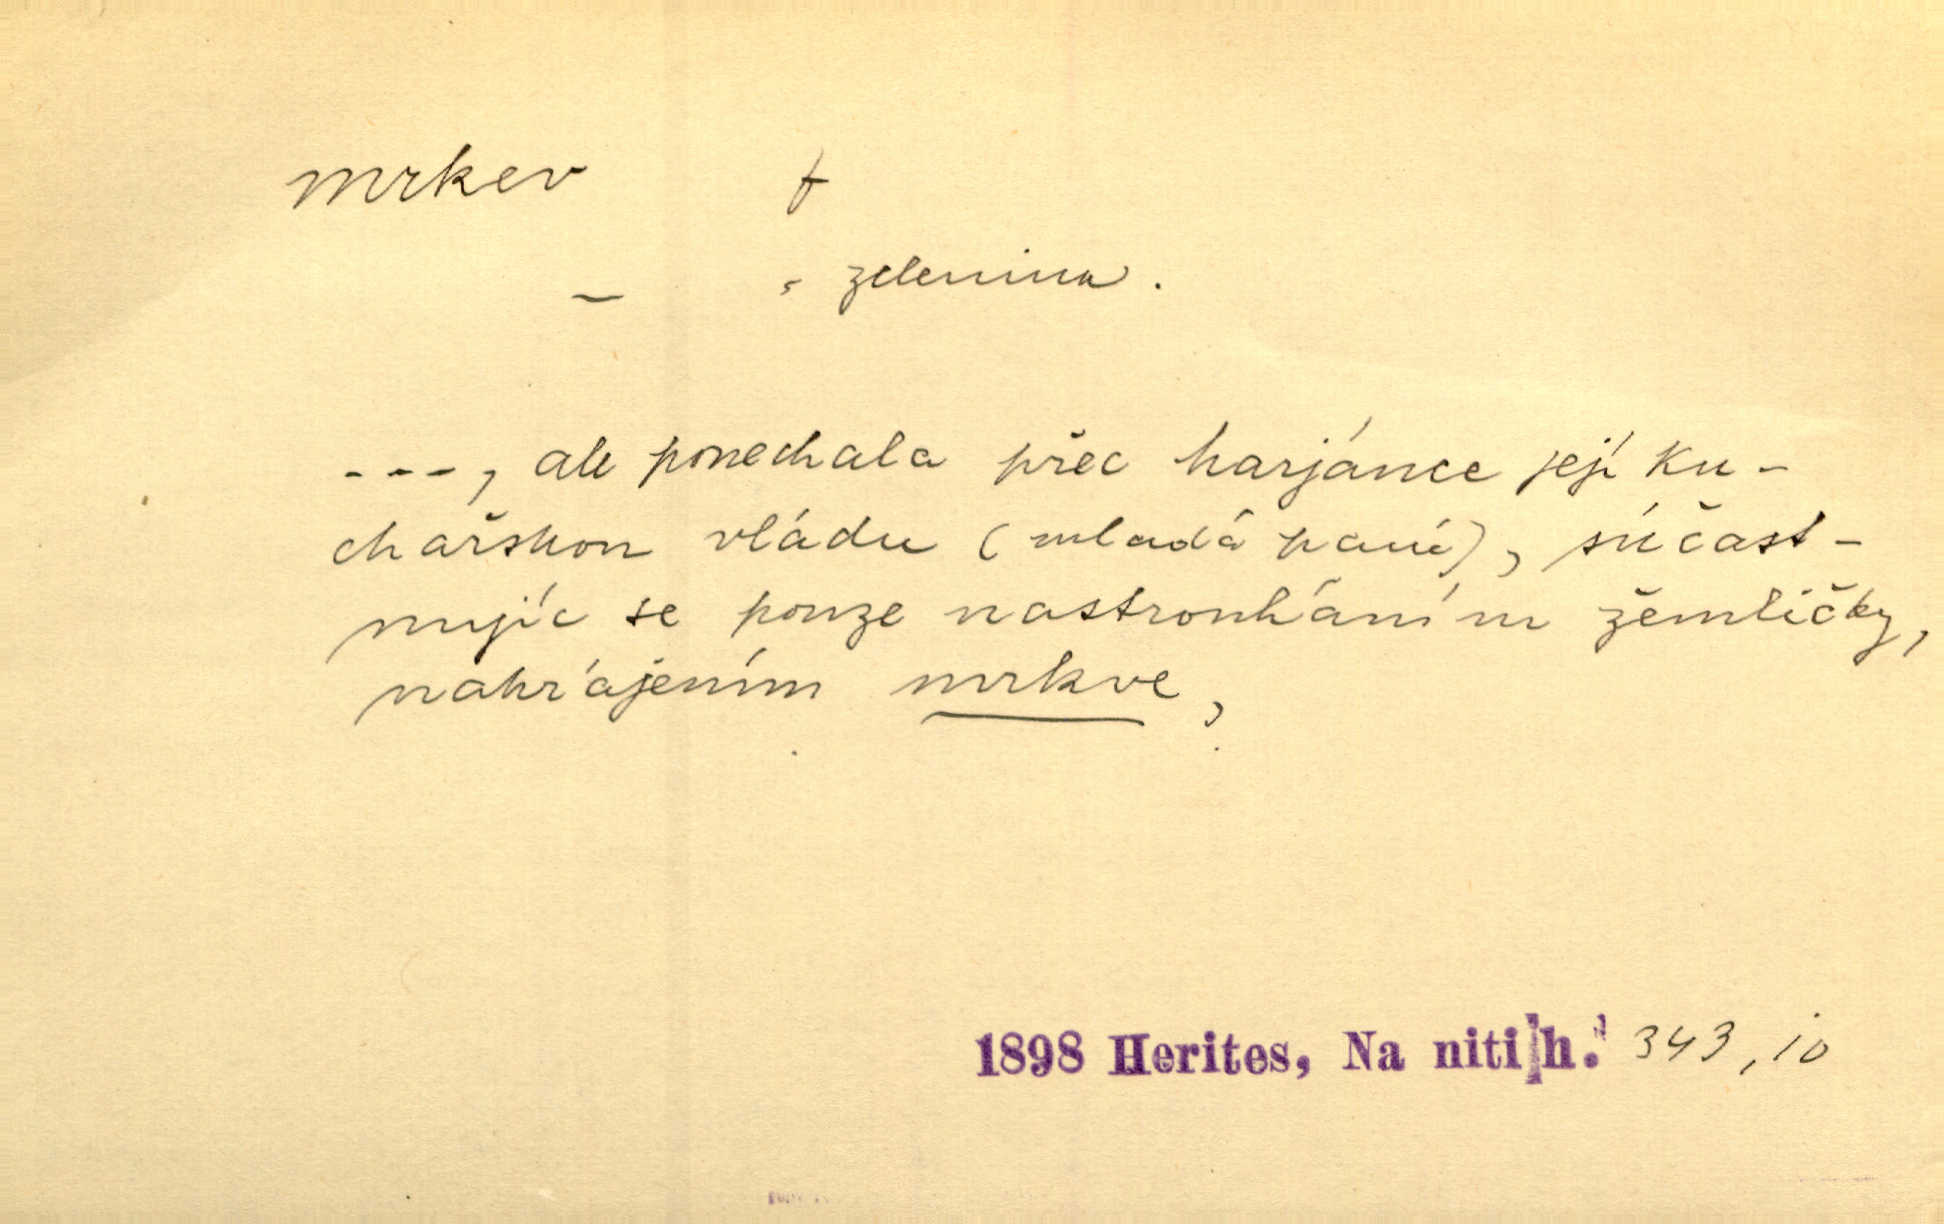 mrkev f
– , zelenina.
---, ale ponechala přec harjánce její ku-
chařskou vládu (mladá paní), súčast-
nujíc se pouze nastrouháním žemličky,
nakrájením mrkve,
1898 Herites, Na nitích. 343, 10